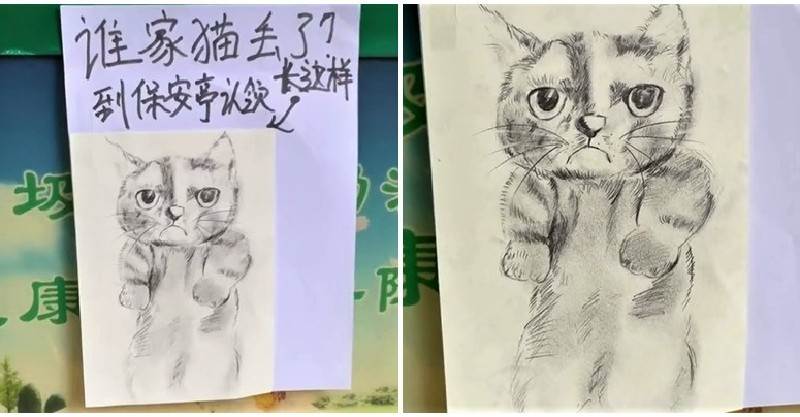 谁家猫丢了?
到保安亭认领
长这样
圾
康
康